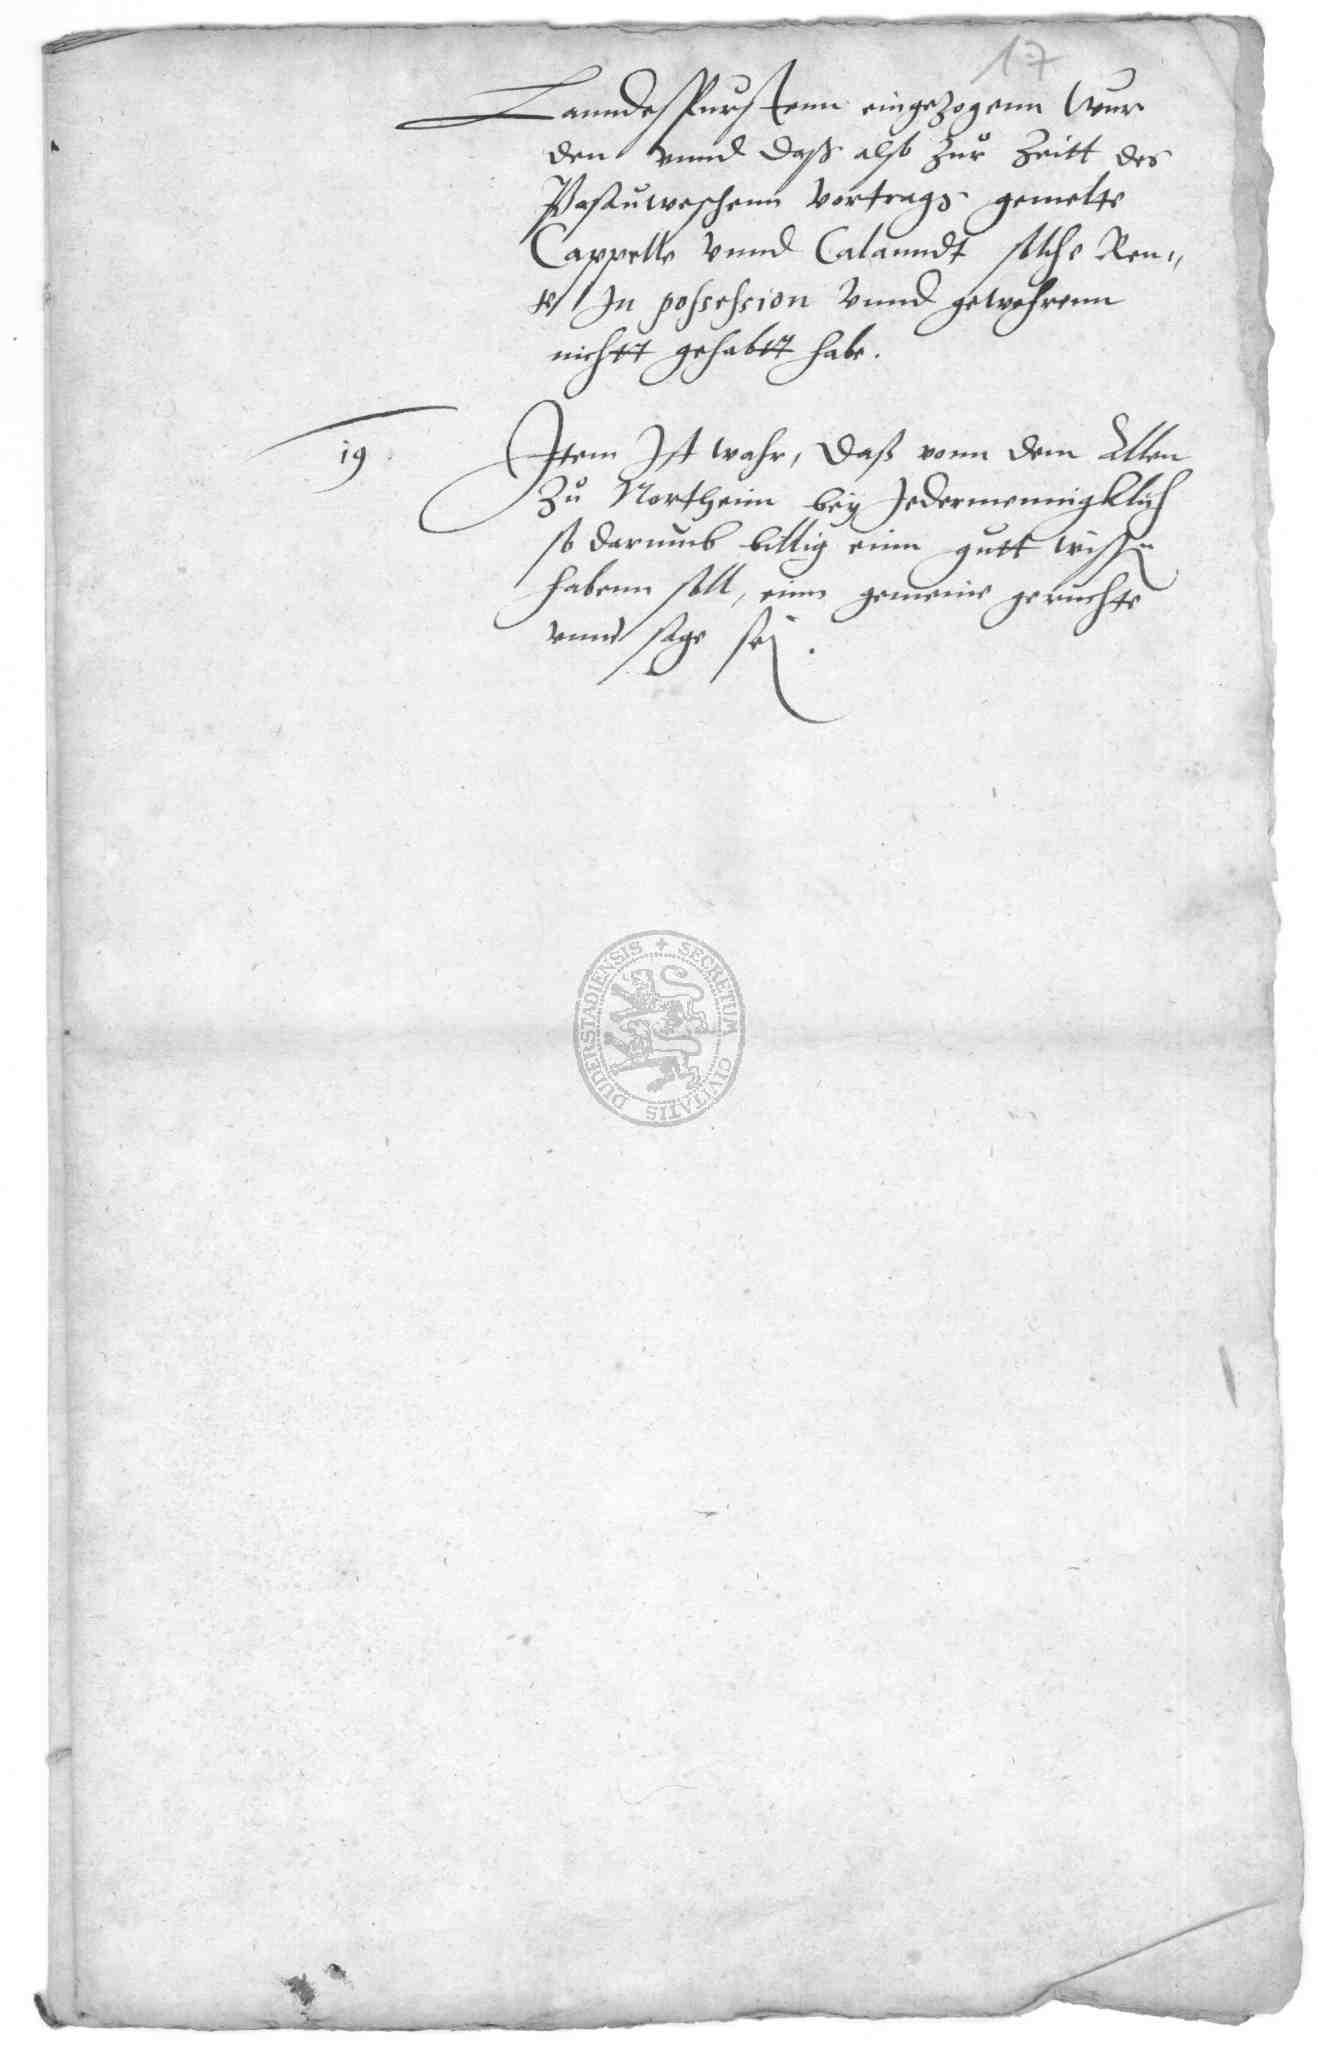 17
Lanndesfurstenn eingezogenn wur
den vnnd daß also zur Zeitt des
Paßauweschenn vortrags gemelte
Cappelle vnnd Calanndt solche Ren„
te In possession vnnd gewehrenn
nichtt gehabtt habe.
19
Item Ist wahr, daß vonn dem Allen
zu Northeim bey Jedermennigklich
so darumb billig einn gutt wissen
habenn soll, einn gemeine geruchte
vnnd sage sej.
SECRETUM CIVITATIS DUDERSTADIENSIS